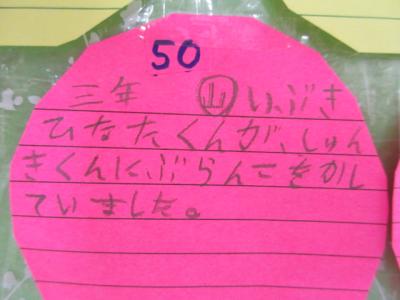 50
三年 ㊤いぶき
ひなたくんが、しゅん
きくんにぶらんこをかし
ていました。